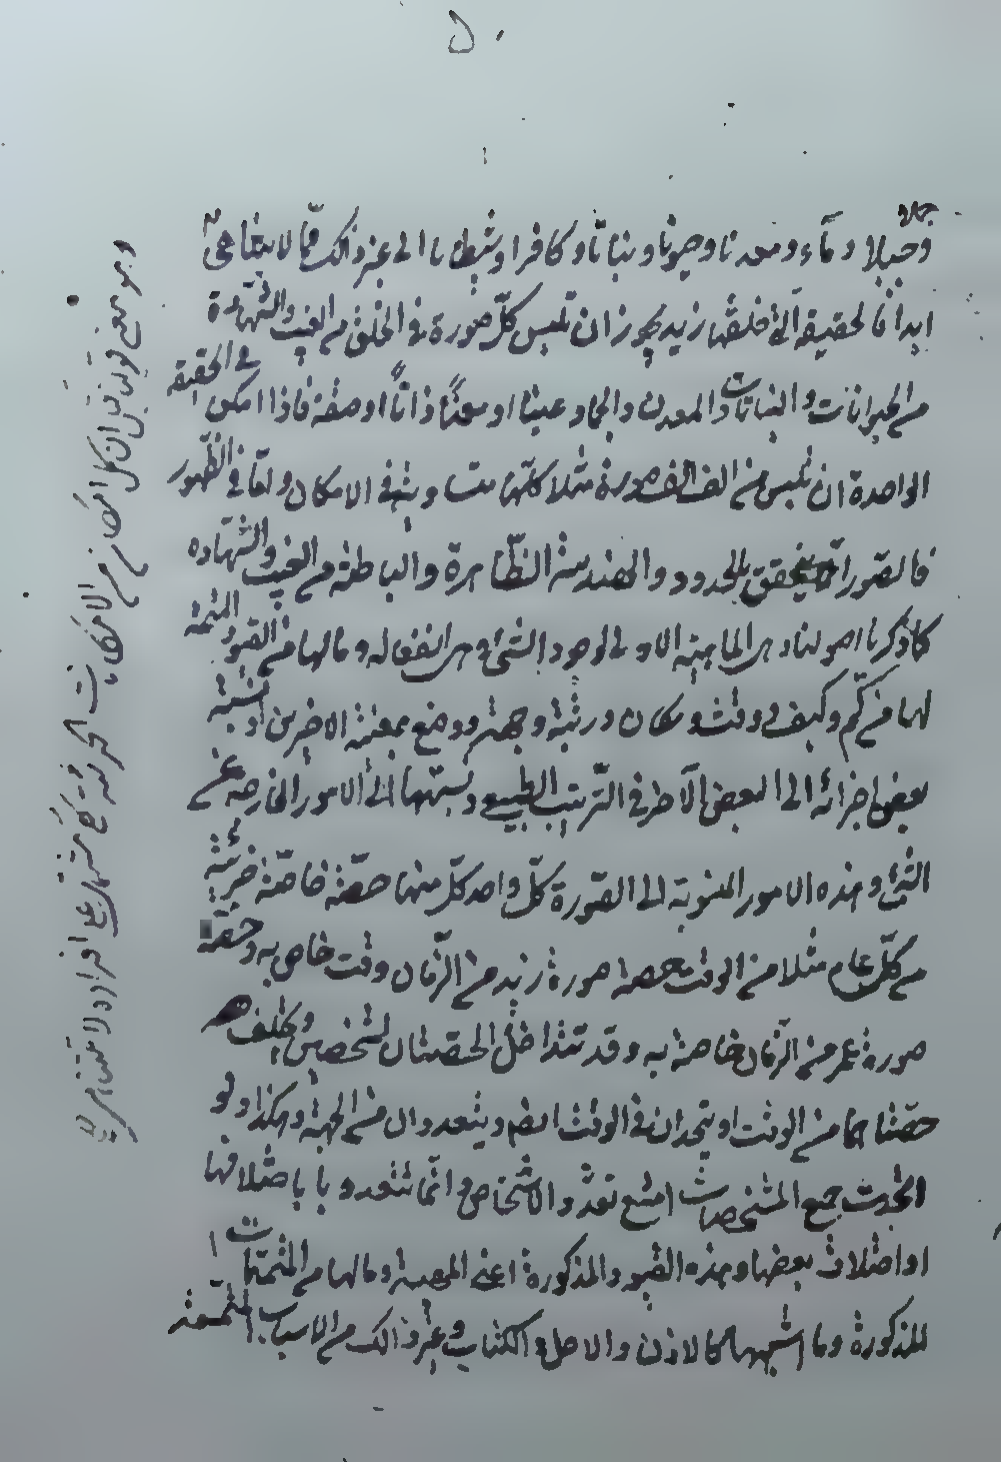 ٥٠
وجبلا وماء ومعدنا وحيونا ونباتا وكافرا وشيطانا الى غير ذلك مما لا يتناهى
ابدا فالحقيقة التي خلقها زيد يجوز ان تلبس كل صورة في الخلق من الغيب والشهادة
من الحيوانات والنباتات والمعدن والجماد عينا او معنا ذاتا او صفة فاذا امكن في الحقيقة
الواحدة ان تلبس من الف الف صورة مثلا كلها متساوية في الامكان ولها في الظهور
فالصورة انما يتحقق بالحدود والهندسة الظاهرة والباطنة من الغيب والشهادة
كما ذكرنا اصولنا وهى الماهية الاولى لوجود الشئ وهى انفعاله وما لها من القيود المتممة
لها من كم وكيف ووقت ومكان ورتبة وجهة ووضع بمعنيه الاخيرين اى نسبة
بعض اجزائه الى البعض الآخر في الترتيب الطبيعى ونسبتها الى الامور الخارجة عن
الشئ وهذه الامور المنسوبة الى الصورة كل واحد كل منها حصة خاصة جزئية
من كل عام مثلا من الوقت حصة صورة زيد من الزمان وقت خاص به وحصة
صورة عمر من الزمان خاصة به وقد تتداخل الحصتان لشخصين ويختلف
حصتاهما من الوقت او يتحدان في الوقت ايضا ويتعددان من الجهة وهكذا ولو
اتحدت جميع المشخصات امتنع تعدد الاشخاص وانما تتعدد باختلافها
او اختلاف بعضها وهذه القيود المذكورة اعنى المعينة وما لها من المتممات
المذكورة وما اشبهها كالاذن والاجل والكتاب وغير ذلك من الاسباب
وهو معنى قولى قبل ان كل امكان من الامكانات الجزئية كلى يشتمل على افراد لا تتناهى